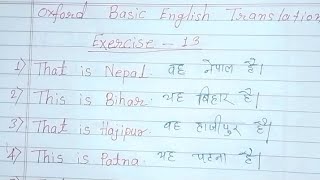 Oxford Basic English Translation
Exercise - 13
1) That is Nepal. वह नेपाल है।
2) This is Bihar. यह बिहार है।
3) That is Hajipur. वह हाजीपुर है।
4) This is Patna. यह पटना है।